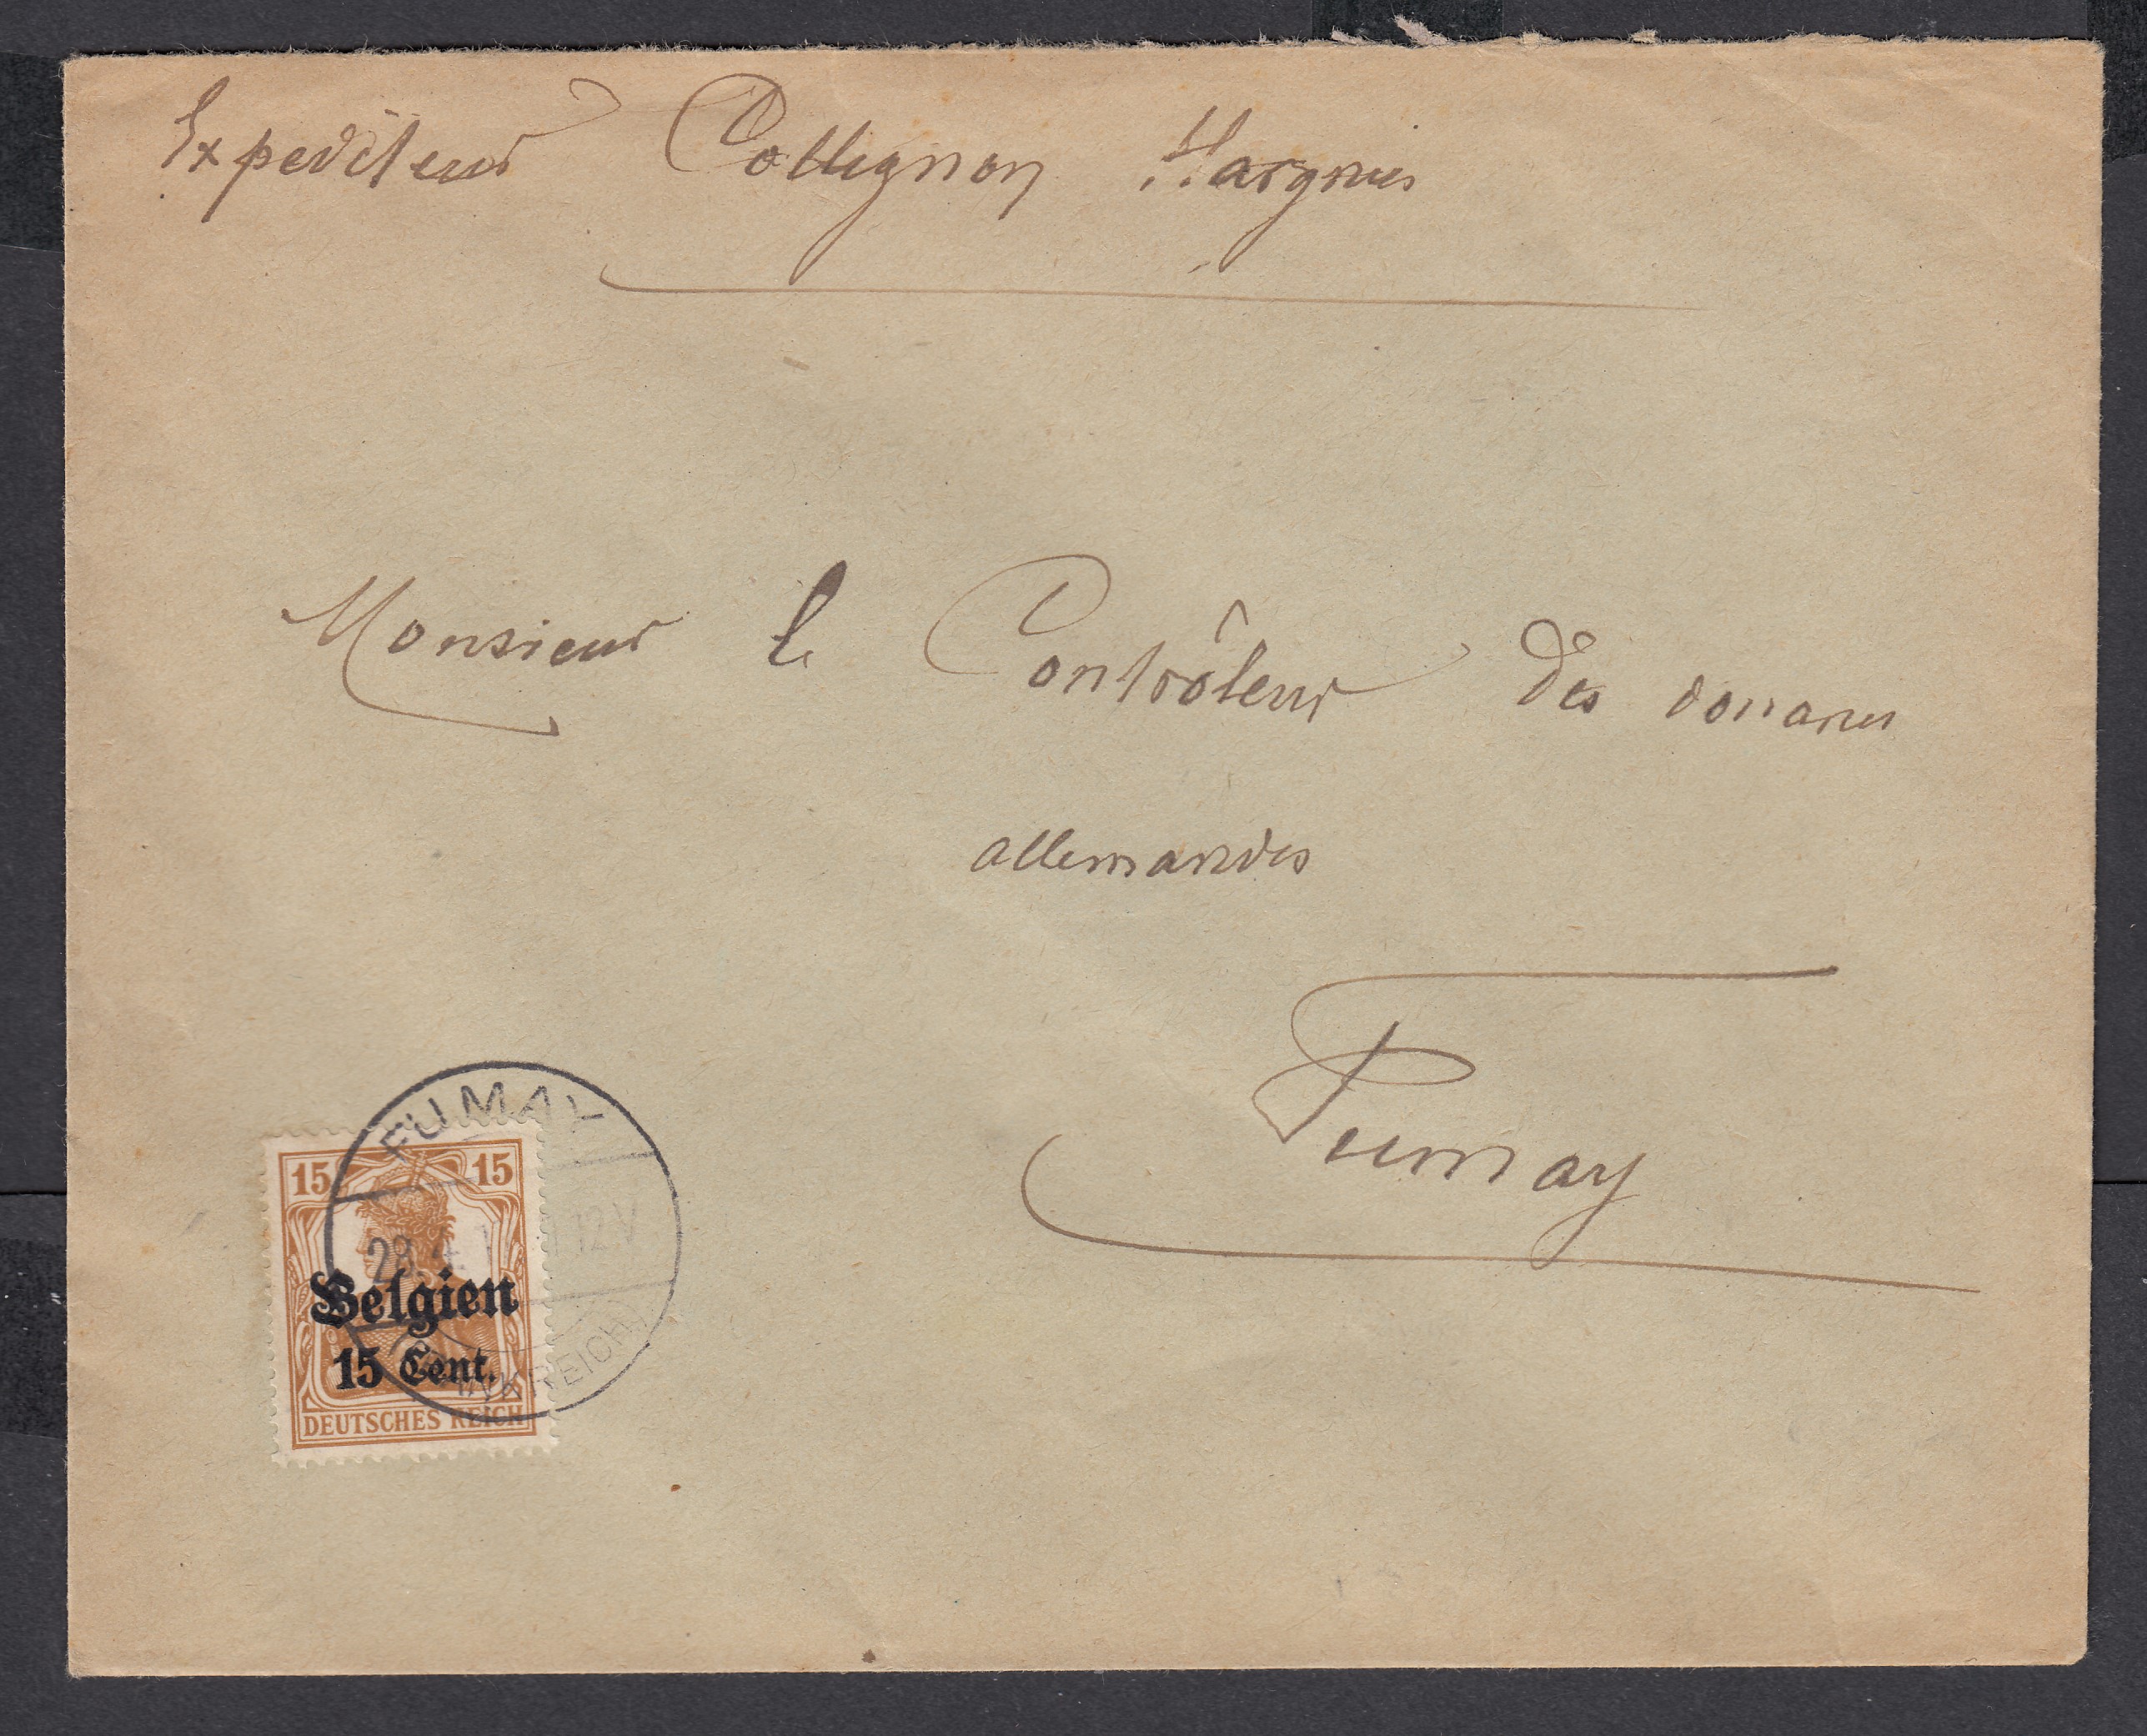 Expediteur Collignon Hargnies
Monsieur le Contrôleur des douanes
allemandes
Fumay
FUMAY
15 15
28.4.1 12V
Belgien
15 Cent.
DEUTSCHES REICH